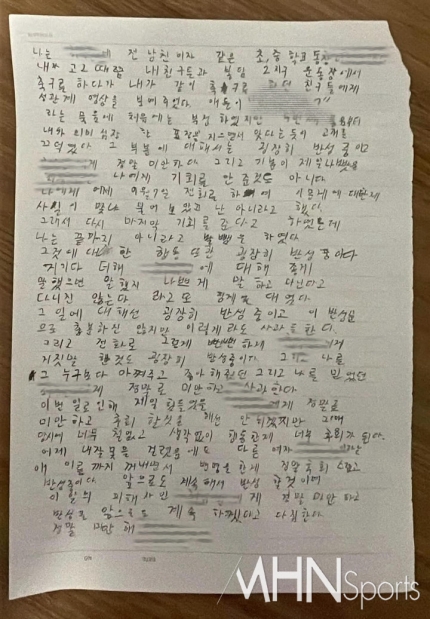 나는 전 남친 이자 같은 초,중 학교 동창
내가 고2 때쯤 내 친구들과 봉림 고지구 운동장에서
축구를 하다가 내가 같이 축구를 하던 친구들에게
성관계 영상을 보여주었다. 애들이
라는 물음에 처음에는 부정 하였지만
내가 의미심장 한 표정을 지으면서 맞다는 듯이 고개를
끄덕였다 그 부분에 대해서는 굉장히 반성 중이고
게 정말 미안하다. 그리고 기분이 제일 나빴을
나에게 기회를 안 준것도 아니다.
나에게 어제 9월 7일 전화로 하여 이 문제에 대한게
사실이 맞냐 물어 보았고 난 아니라고 했다.
그래서 다시 마지막 기회를 준다고 하였는데
나는 끝까지 아니라고 발뺌을 하였다
그것에 대한 행동 또한 굉장히 반성 중이다
거기다 더해 에 대해 좋게
말했으면 안 했지 나쁘게 말 하고 다닌다고
다니진 않는다 라고도 핑계를 대었다.
그 일에 대해선 굉장히 반성 중이고 이 반성문
으로 충분하진 않지만 이렇게라도 사과를 한다.
그리고 전화로 그렇게 뻔뻔하게 게
거짓말 했던 것도 굉장히 반성중이다 그리고 나를
그 누구보다 아껴주고 좋아해줬던 그리고 나를 믿었던
게 정말로 미안하고 사과한다
이번 일로 인해 제일 힘들었을 에게 정말로
미안하고 후회 한짓을 해선 안 되겠지만 그때
당시에 너무 철없고 생각없이 행동한게 너무 후회가 된다.
어제 내 잘못을 걸렸음에도 다른 여자
애 이름 까지 꺼내면서 변명을 한게 정말 후회 스럽고
반성중이다. 앞으로도 계속해서 반성 할것이며
이 일의 피해자인 게 정말 미안 하고
반성을 앞으로도 계속 하겠다고 다짐한다.
정말 미안해
MHN Sports